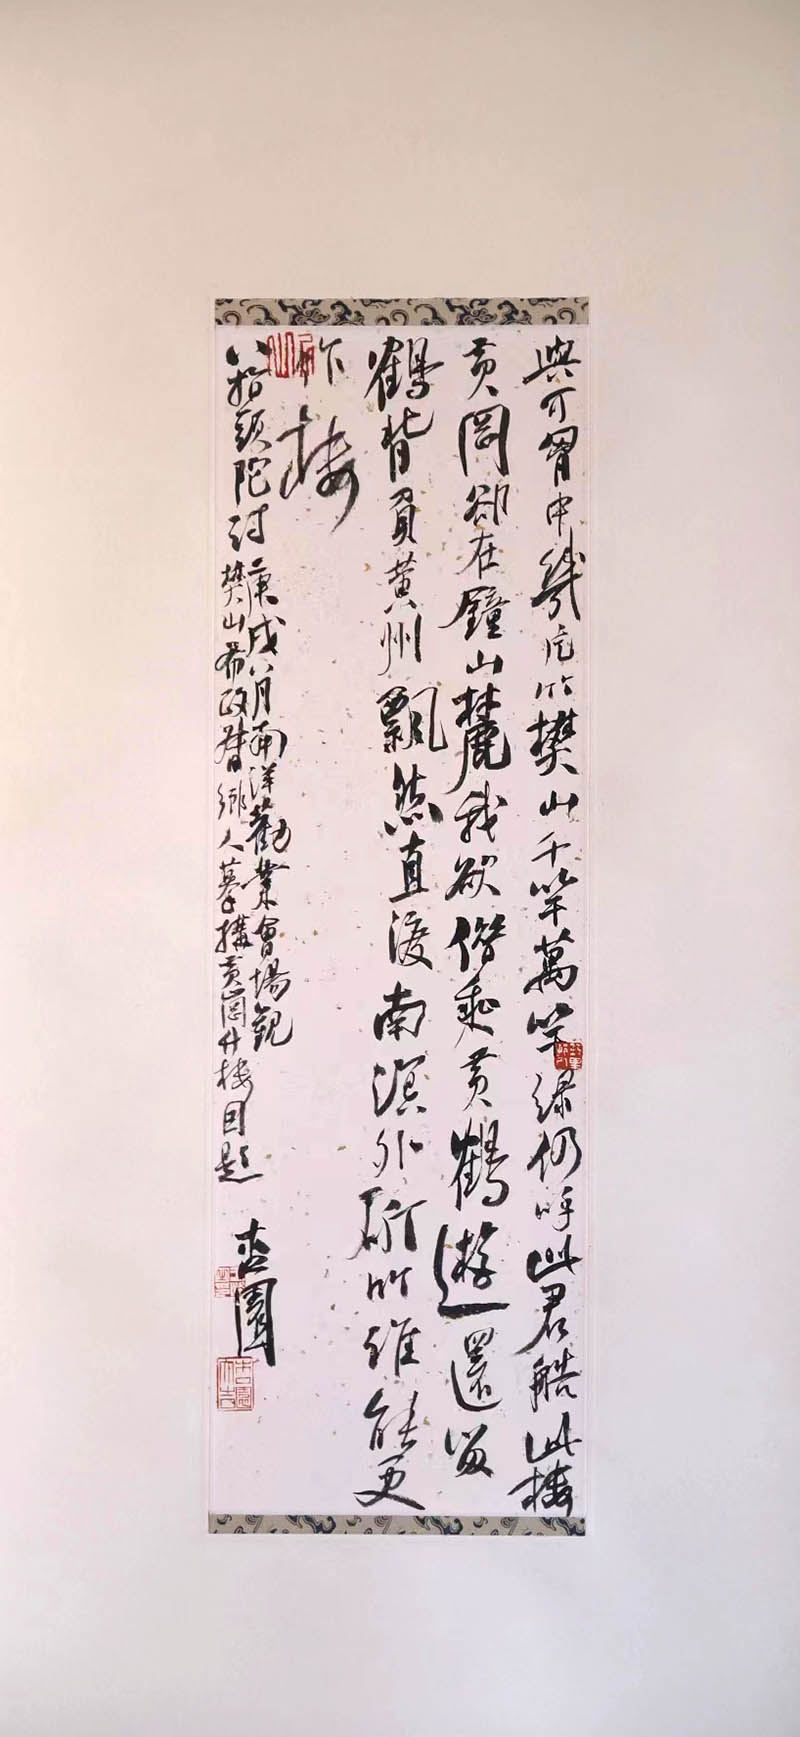 與可胷中幾疋竹樊山千竿萬竿綠仍呼此君艁此樓
黃岡卻在鐘山麓我欲偕乘黃鶴遊還留
鶴背負黃州飄然直渡南溟外斫竹誰能更
作樓
八指頭陀詩 庚戌八月南洋勸業會場觀
樊山布政督鄉人摹搆黃岡竹樓因題
杏園